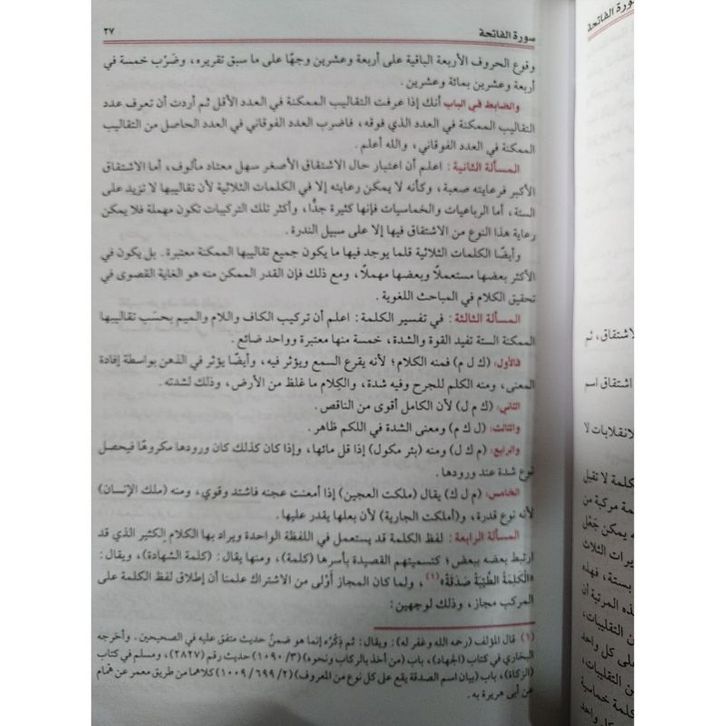 سورة الفاتحة
٢٧
وقوع الحروف الأربعة الباقية على أربعة وعشرين وجهًا على ما سبق تقريره، وضَرْب خمسة في
أربعة وعشرين بمائة وعشرين.
والضابط في الباب أنك إذا عرفت التقاليب الممكنة في العدد الأقل ثم أردت أن تعرف عدد
التقاليب الممكنة في العدد الذي فوقه، فاضرب العدد الفوقاني في العدد الحاصل من التقاليب
الممكنة في العدد الفوقاني، والله أعلم.
المسألة الثانية: اعلم أن اعتبار حال الاشتقاق الأصغر سهل معتاد مألوف، أما الاشتقاق
الأكبر فرعايته صعبة، وكأنه لا يمكن رعايته إلا في الكلمات الثلاثية لأن تقاليبها لا تزيد على
الستة، أما الرباعيات والخماسيات فإنها كثيرة جدًّا، وأكثر تلك التركيبات تكون مهملة فلا يمكن
رعاية هذا النوع من الاشتقاق فيها إلا على سبيل الندرة.
وأيضًا الكلمات الثلاثية قلما يوجد فيها ما يكون جميع تقاليبها الممكنة معتبرة. بل يكون في
الأكثر بعضها مستعملًا وبعضها مهملًا، ومع ذلك فإن القدر الممكن منه هو الغاية القصوى في
تحقيق الكلام في المباحث اللغوية.
المسألة الثالثة: في تفسير الكلمة: اعلم أن تركيب الكاف واللام والميم بحسب تقاليبها
الممكنة الستة تفيد القوة والشدة، خمسة منها معتبرة وواحد ضائع.
فالأول: (ك ل م) فمنه الكلام؛ لأنه يقرع السمع ويؤثر فيه، وأيضًا يؤثر في الذهن بواسطة إفادة
المعنى، ومنه الكلم للجرح وفيه شدة، والكِلام ما غلظ من الأرض، وذلك لشدته.
الثاني: (ك م ل) لأن الكامل أقوى من الناقص.
والثالث: (ل ك م) ومعنى الشدة في اللكم ظاهر.
والرابع: (م ك ل) ومنه (بئر مكول) إذا قل مائها، وإذا كان كذلك كان ورودها مكروهًا فيحصل
نوع شدة عند ورودها.
الخامس: (م ل ك) يقال (ملكت العجين) إذا أمعنت عجنه فاشتد وقوي، ومنه (ملك الإنسان)
لأنه نوع قدرة، و(أملكت الجارية) لأن بعلها يقدر عليها.
المسألة الرابعة: لفظ الكلمة قد يستعمل في اللفظة الواحدة ويراد بها الكلام الكثير الذي قد
ارتبط بعضه ببعض؛ كتسميتهم القصيدة بأسرها (كلمة)، ومنها يقال: (كلمة الشهادة)، ويقال:
«الْكَلِمَةُ الطَّيِّبَةُ صَدَقَةٌ»(١)، ولما كان المجاز أَوْلى من الاشتراك علمنا أن إطلاق لفظ الكلمة على
المركب مجاز، وذلك لوجهين:
(١) قال المؤلف (رحمه الله وغفر له): ويقال: ثم ذِكْرُه إنما هو ضمن حديث متفق عليه في الصحيحين. وأخرجه
البخاري في كتاب (الجهاد)، باب (من أخذ بالركاب ونحوه) (٣/ ١٠٩٠) حديث رقم (٢٨٢٧)، ومسلم في كتاب
(الزكاة)، باب (بيان اسم الصدقة يقع على كل نوع من المعروف) (٢/ ٦٩٩/ ١٠٠٩) كلاهما من طريق معمر عن همام
عن أبي هريرة به.
سورة الفاتحة
لاشتقاق، ثم
اشتقاق اسم
لانقلابات لا
كلمة لا تقبل
مة مركبة من
ه يمكن جَعْل
يرات الثلاث
بستة، فهذه
ذه المرتبة أن
ن التقليبات،
على كل واحد
ن التقليبات،
كلمة خماسية
كل واحد